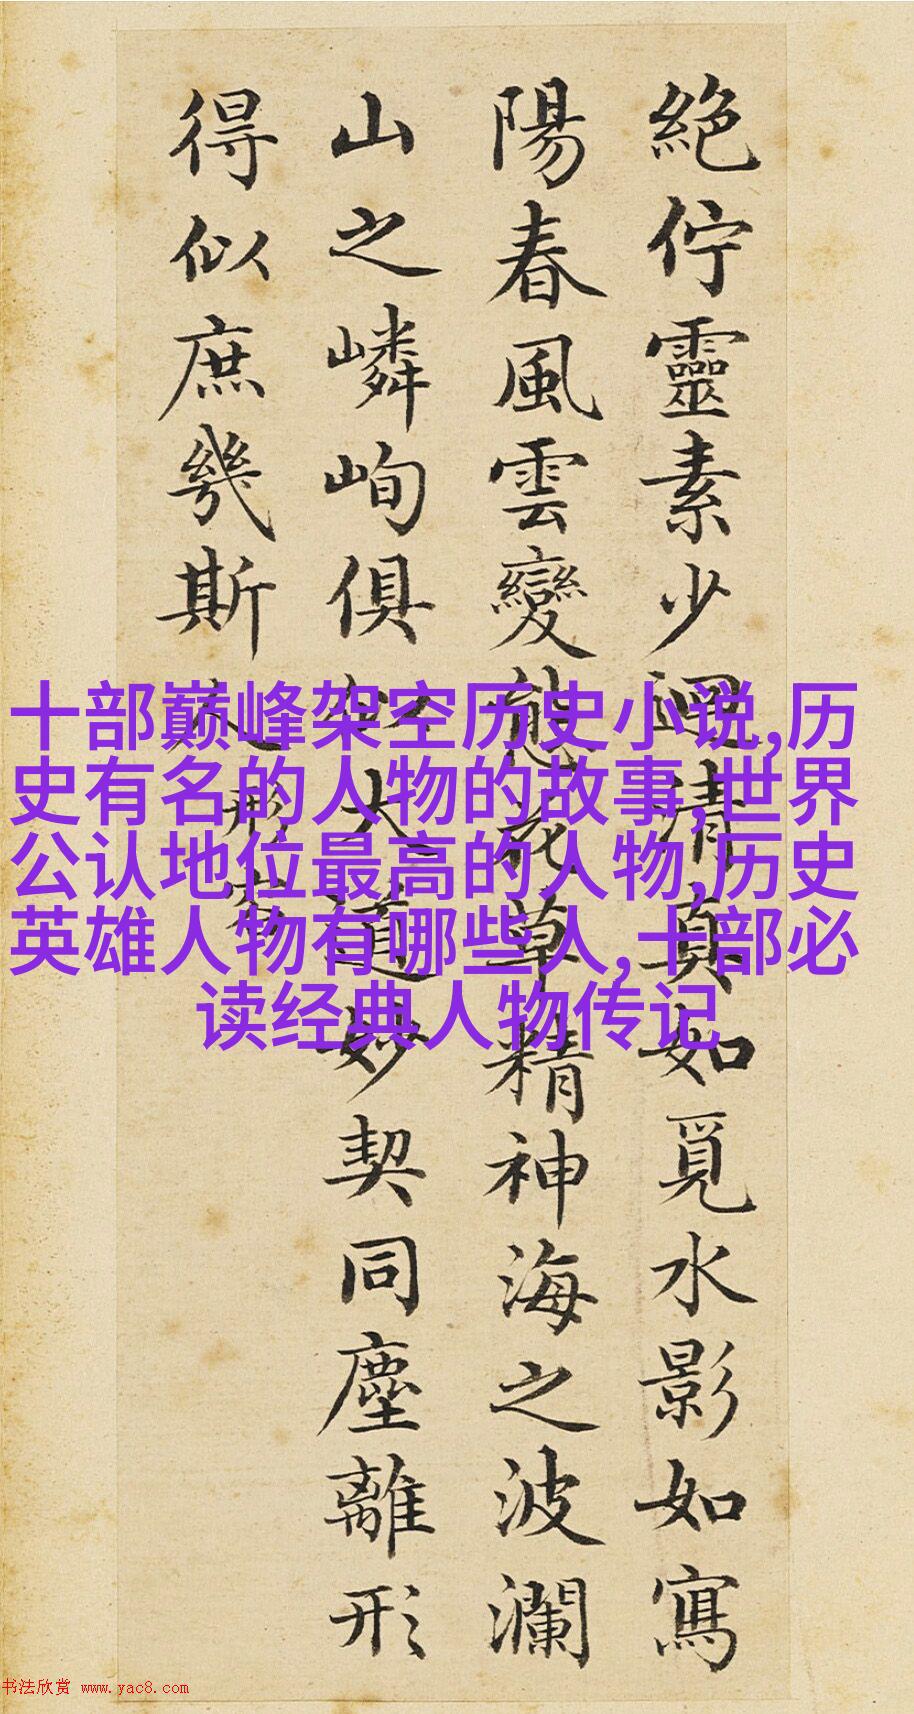 絶佇靈素少迴清真如覓水影如寫
陽春風雲變態花草精神海之波瀾
山之嶙峋俱似大道妙契同塵離形
得似庶幾斯人
形容
十部巅峰架空历史小说,历
史有名的人物的故事,世界
公认地位最高的人物,历史
英雄人物有哪些人,十部必
读经典人物传记
书法欣赏 www.yac8.com